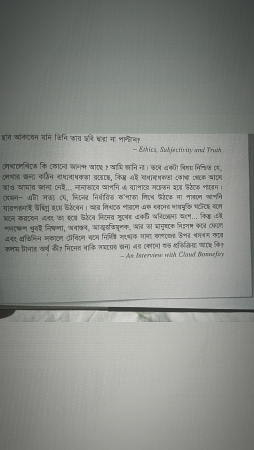 ছবি আঁকবেন যদি তিনি তার ছবি দ্বারা না পাল্টান?
– Ethics, Subjectivity and Truth
লেখালেখিতে কি কোনো আনন্দ আছে ? আমি জানি না। তবে একটা বিষয় নিশ্চিত যে,
লেখার জন্য কঠিন বাধ্যবাধকতা রয়েছে, কিন্তু এই বাধ্যবাধকতা কোথা থেকে আসে
তাও আমার জানা নেই... নানাভাবে আপনি এ ব্যাপারে সচেতন হয়ে উঠতে পারেন।
যেমন– এটা সত্য যে, দিনের নির্ধারিত ক'পাতা লিখে উঠতে না পারলে আপনি
যারপরনাই উদ্বিগ্ন হয়ে উঠবেন। আর লিখতে পারলে এক ধরনের দায়মুক্তি ঘটেছে বলে
মনে করবেন এবং তা হয়ে উঠবে দিনের সুখের একটি অবিচ্ছেদ্য অংশ... কিন্তু এই
পদক্ষেপ খুবই নিষ্ফলা, অবাস্তব, আত্মরতিমূলক, আর তা মানুষকে নিঃসঙ্গ করে ফেলে
এবং প্রতিদিন সকালে টেবিলে বসে নির্দিষ্ট সংখ্যক সাদা কাগজের উপর খসখস করে
কলম টানার অর্থ কী? দিনের বাকি সময়ের জন্য এর কোনো শুভ প্রতিক্রিয়া আছে কি?
– An Interview with Claud Bonnefoy